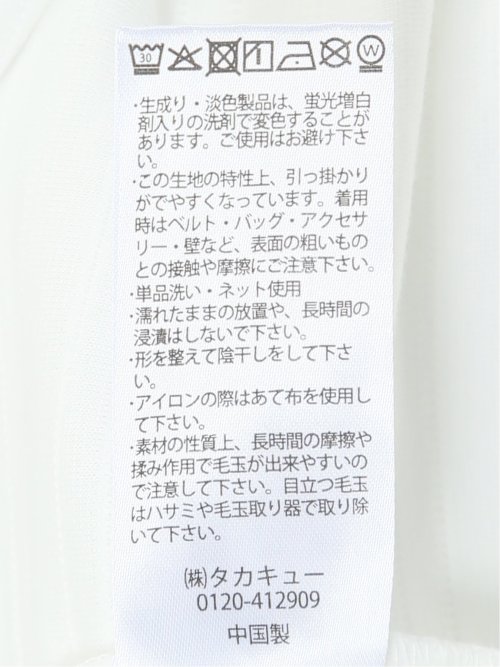 30 W
・生成り・淡色製品は、蛍光増白
剤入りの洗剤で変色することが
あります。ご使用はお避け下さ
い。
・この生地の特性上、引っ掛かり
がでやすくなっています。着用
時はベルト・バッグ・アクセサ
リー・壁など、表面の粗いもの
との接触や摩擦にご注意下さい。
・単品洗い・ネット使用
・濡れたままの放置や、長時間の
浸漬はしないで下さい。
・形を整えて陰干しをして下さ
い。
・アイロンの際はあて布を使用し
て下さい。
・素材の性質上、長時間の摩擦や
揉み作用で毛玉が出来やすいの
で注意して下さい。目立つ毛玉
はハサミや毛玉取り器で取り除
いて下さい。
㈱タカキュー
0120-412909
中国製